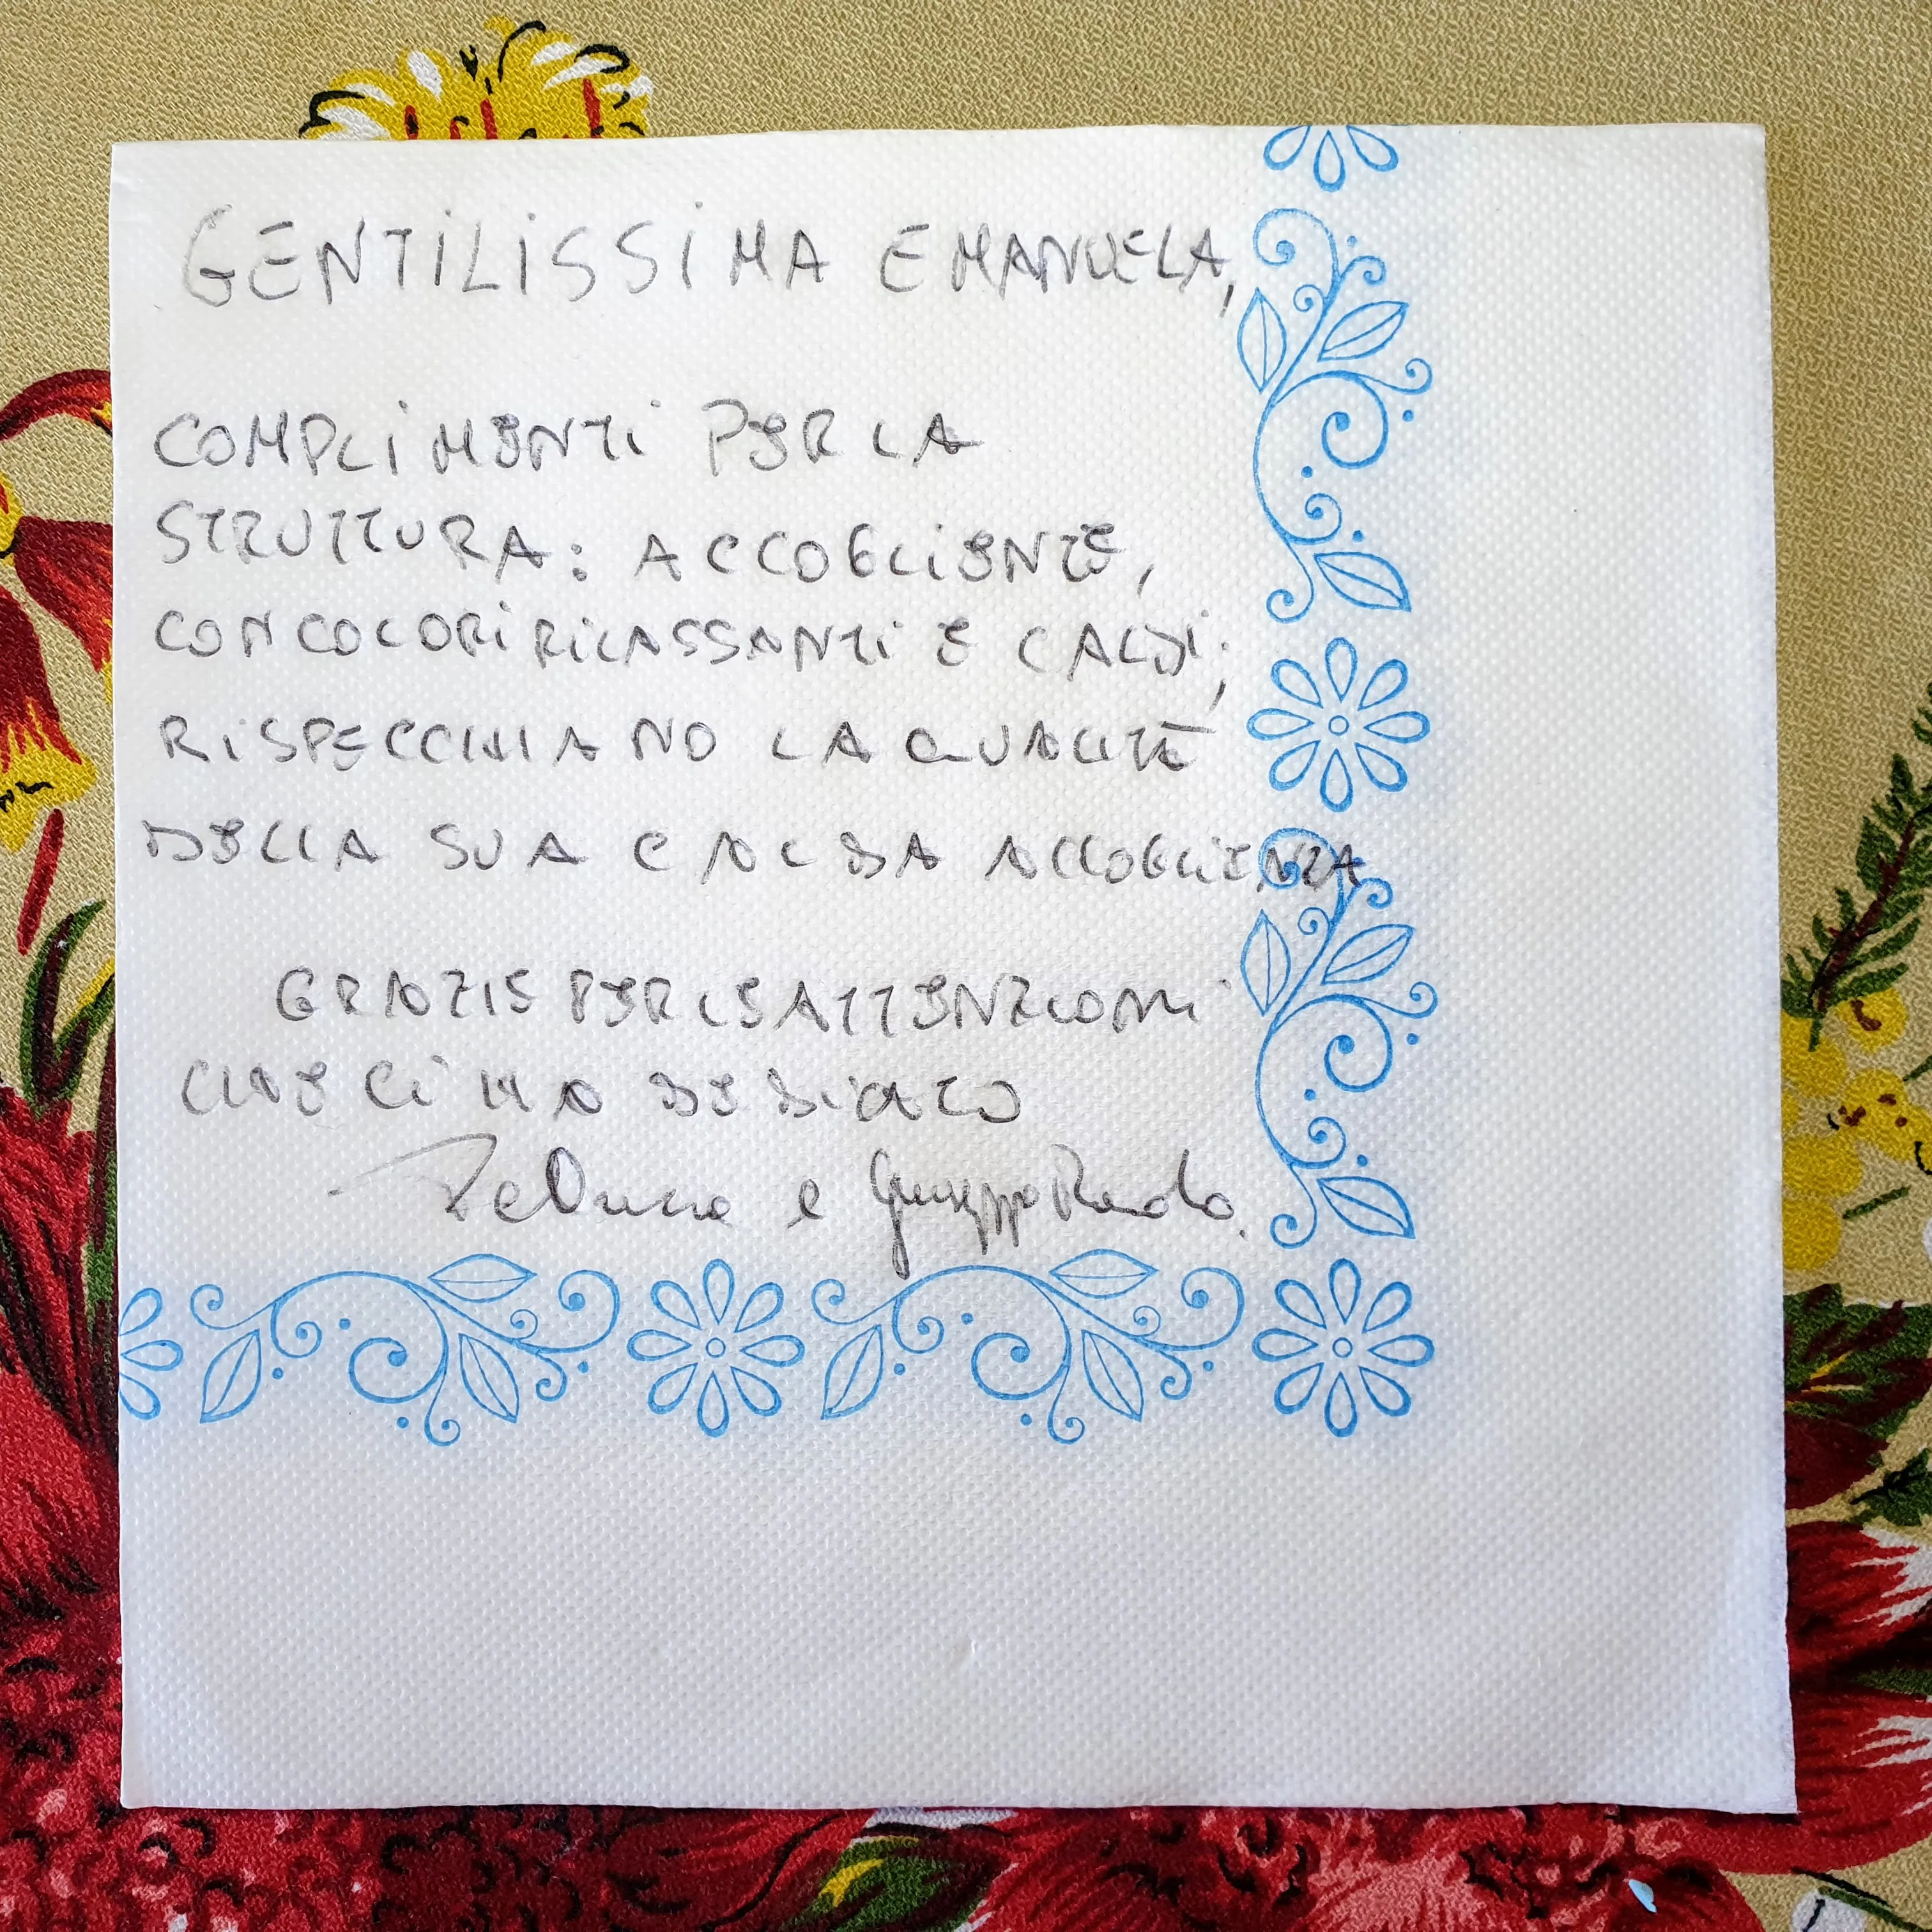 GENTILISSIMA EMANUELA,
COMPLIMENTI PER LA
STRUTTURA: ACCOGLIENTE,
CON COLORI RILASSANTI E CALDI;
RISPECCHIANO LA QUALITÀ
DELLA SUA CALDA ACCOGLIENZA
GRAZIE PER LE ATTENZIONI
CHE CI HA DEDICATO
e Giuseppe